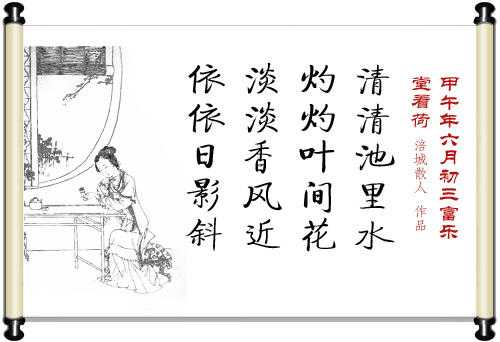 甲午年六月初三富乐
堂看荷
涪城散人 作品
清清池里水
灼灼叶间花
淡淡香风近
依依日影斜